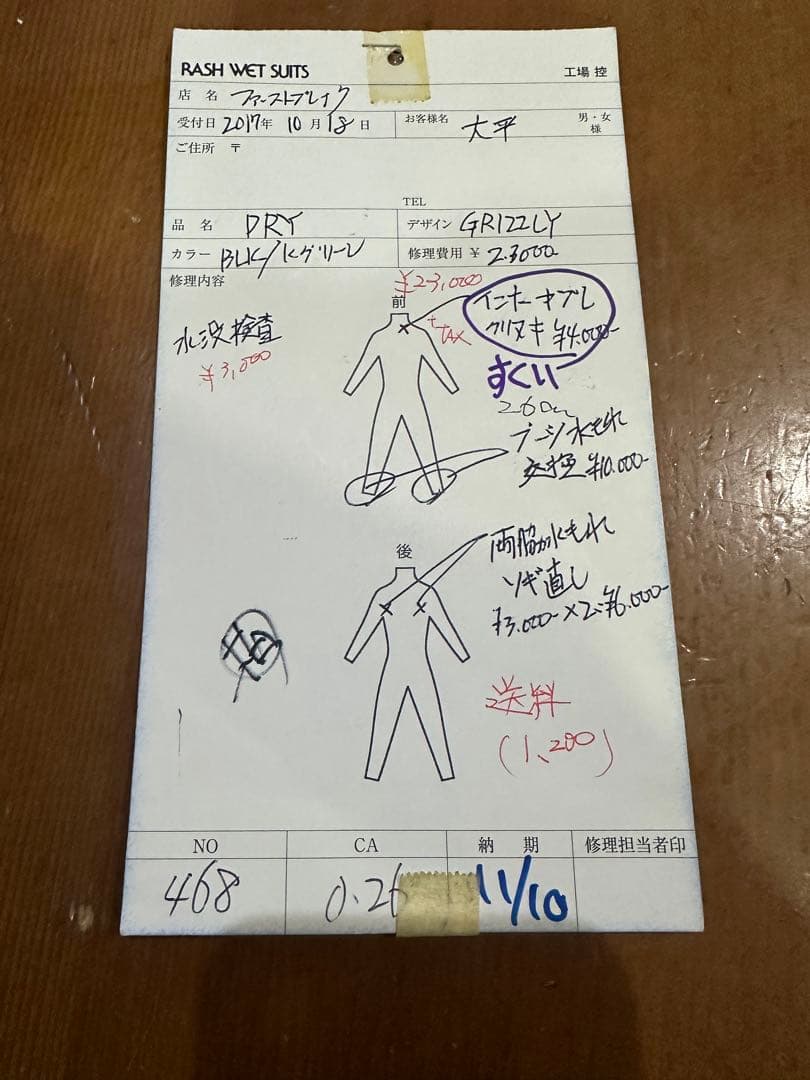 RASH WET SUITS
工場 控
店 名 ファーストブレイク
受付日 2017年 10月 18日
お客様名 大平 男・女 様
ご住所 〒
TEL
品 名 DRY
デザイン GRIZZLY
カラー BLK/Kグリーン
修理費用 ¥ 23000-
修理内容
¥23,000
+TAX
前
水没検査
¥3,000
¥4.000-
すくい
260
ブーツ水もれ
交換 ¥10.000-
後
両脇水もれ
ソギ直し
¥3.000-×2 ¥6.000-
送料
(1,200)
NO CA 納 期 修理担当者印
468 0.26 11/10